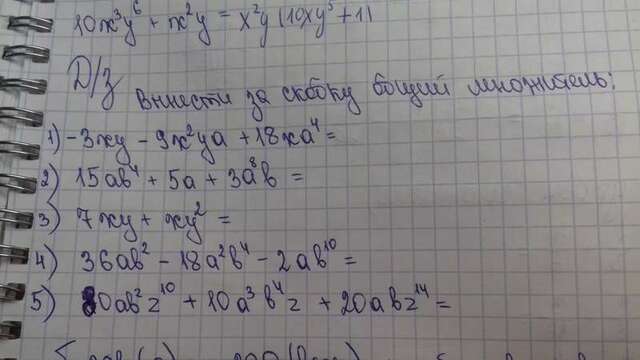 10x³y⁶ + x²y = x²y (10xy⁵ + 1)
Д/з Вынести за скобку общий множитель:
1) -3xy - 9x²ya + 18xa⁴ =
2) 15ab⁴ + 5a + 3a⁸b =
3) 7xy + xy² =
4) 36ab² - 18a²b⁴ - 2ab¹⁰ =
5) 80ab²z¹⁰ + 10a³b⁴z + 20abz¹⁴ =